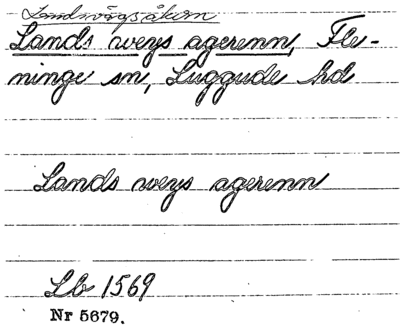 Landsvägsåkern
Lands weys agerenn, Fle-
ninge sn, Luggude hd
Lands weys agerenn
Lb 1569
Nr 5679.